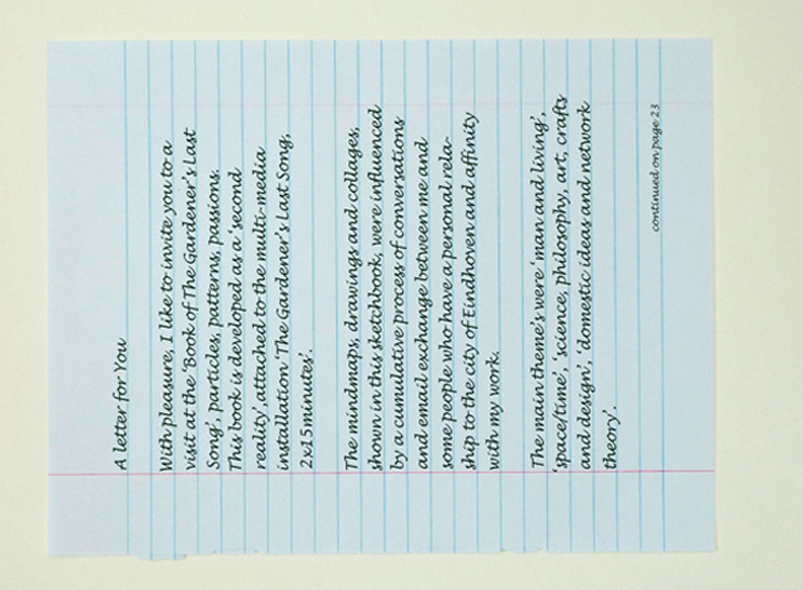 A letter for You
With pleasure, I like to invite you to a
visit at the 'Book of The Gardener's Last
Song', particles, patterns, passions.
This book is developed as a 'second
reality', attached to the multi-media
installation 'The Gardener's Last Song,
2x15 minutes'.
The mindmaps, drawings and collages,
shown in this sketchbook, were influenced
by a cumulative process of conversations
and email exchange between me and
some people who have a personal rela-
ship to the city of Eindhoven and affinity
with my work.
The main theme's were 'man and living',
'space/time', 'science, philosophy, art, crafts
and design', 'domestic ideas and network
theory'.
continued on page 23